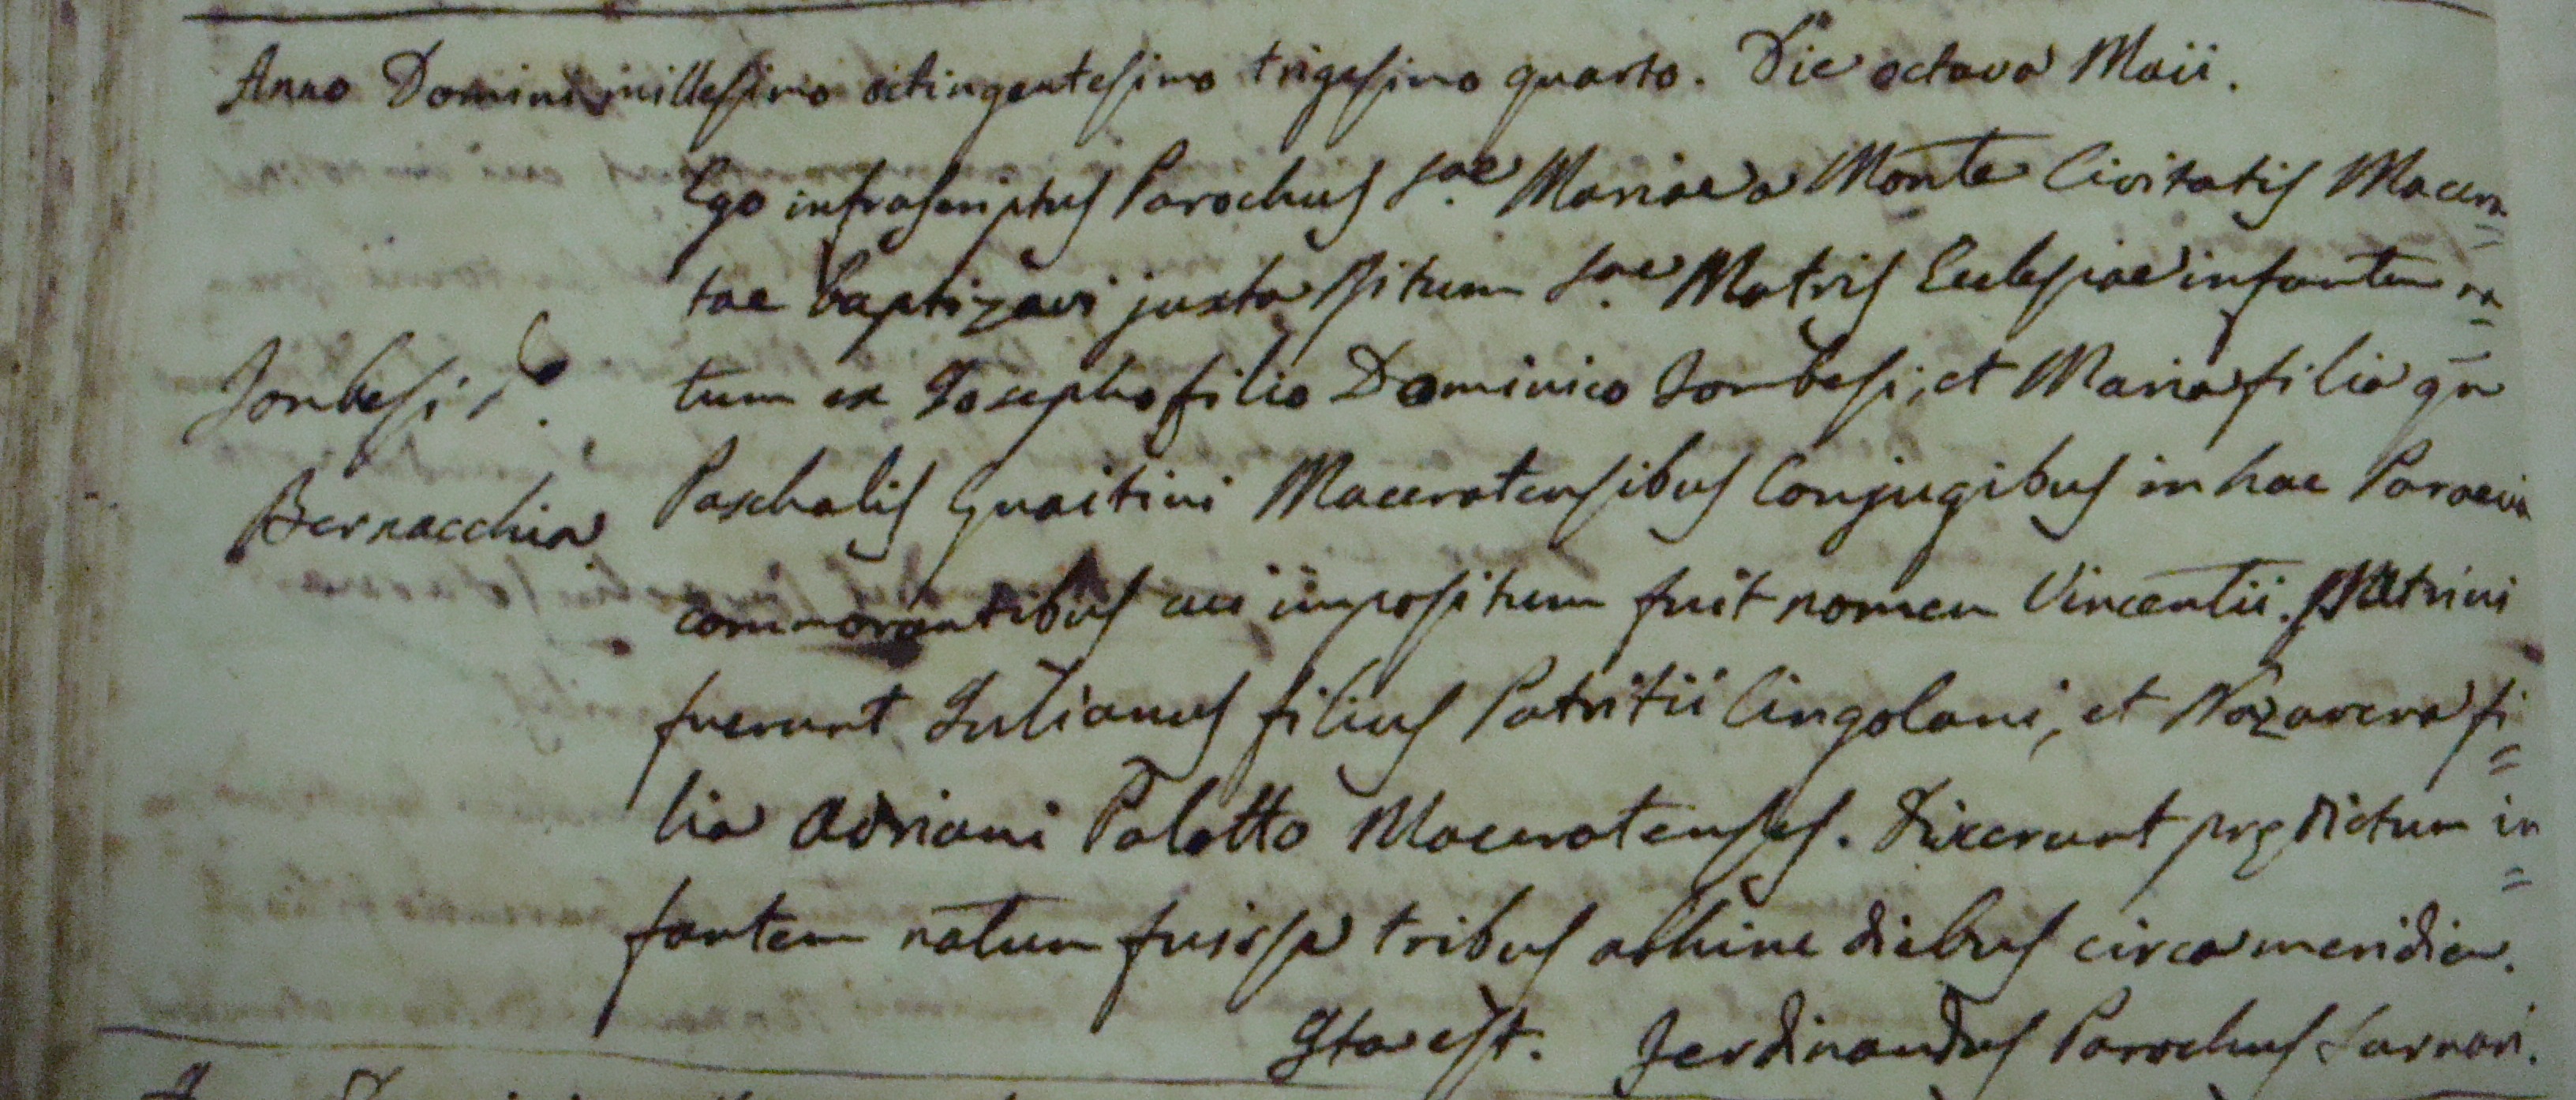 Anno Domini millesimo octingentesimo trigesimo quarto. Die octava Maii.
Ego infrascriptus Parochus S.ae Mariae a Monte Civitatis Macera=
tae baptizavi juxta Ritum S.ae Matris Ecclesiae infantem na=
tum ex Josepho filio Dominico Jombesi, et Maria filia qm
Jombesi
Paschalis Guaitini Maceratensibus Conjugibus in hac Paraecia
Bernacchia
commorantibus cui impositum fuit nomen Vincentii. Patrini
fuerunt Julianus filius Patritii Cingolani, et Nazarena fi=
lia Adriani Paletto Maceratenses. Dixerunt prędictum in=
fantem natum fuisse tribus abhinc diebus circa meridiem.
Ita est. Ferdinandus Parochus